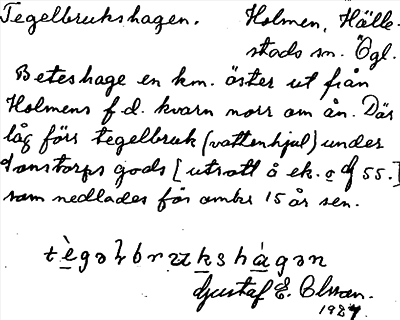 Tegelbrukshagen. Holmen, Hälle-
stads sn. Ögl.
Beteshage en km. öster ut från
Holmens f d. kvarn norr om ån. Där
låg förr tegelbruk (vattenhjul) under
Tonstorps gods [utsatt å ek. c df 55.]
som nedlades för omkr 15 år sen.
tègəlbrʉkshàgən
Gustaf E. Olsson.
1927.